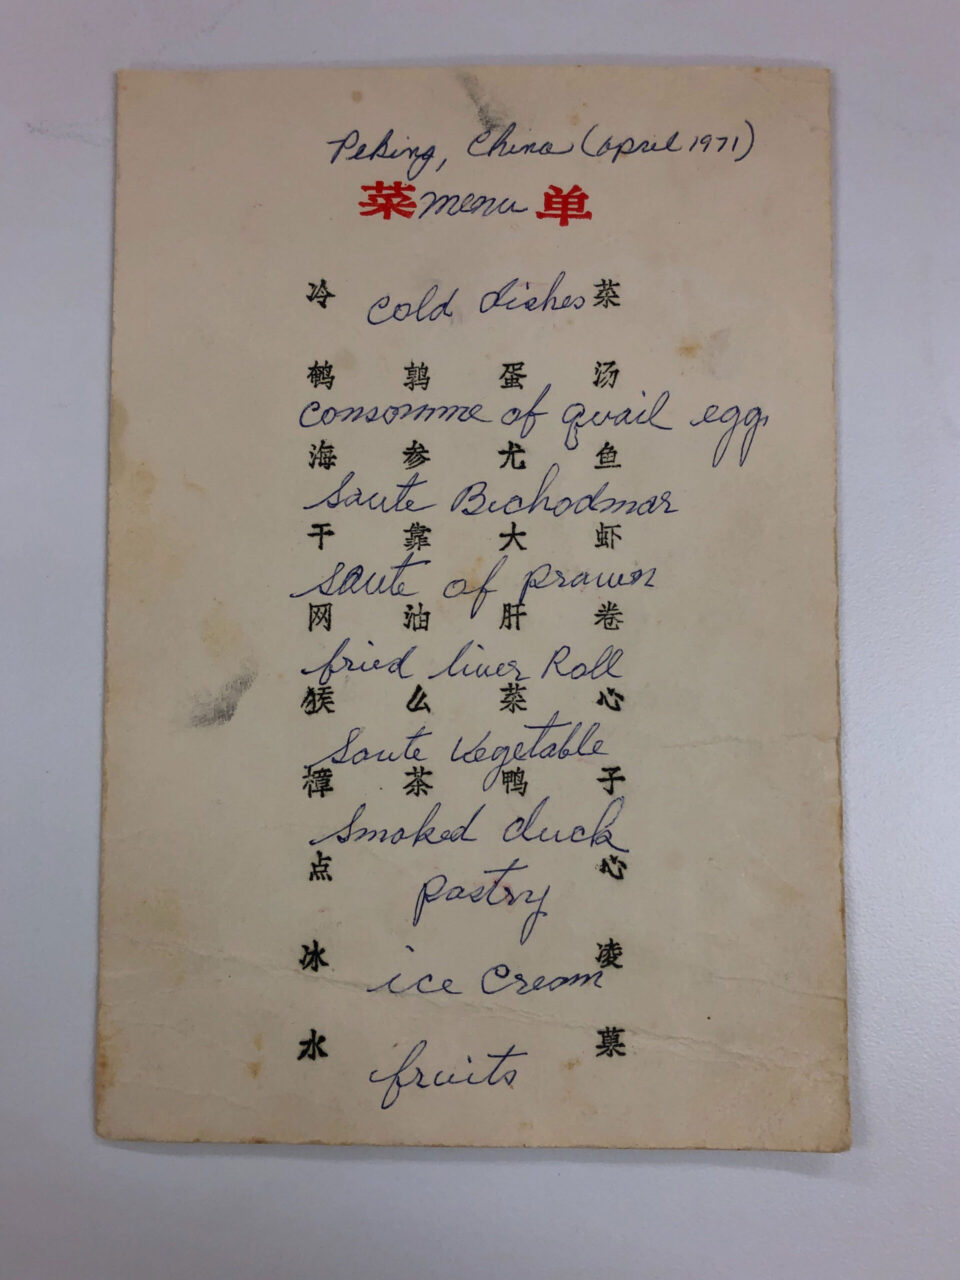 Peking, China (April 1971)
菜 menu 单
冷 cold dishes 菜
鹌鹑蛋汤
consomme of quail egg
海参尤鱼
Saute Bichodmar
干靠大虾
saute of prawn
网油肝卷
fried liver Roll
猴么菜心
Saute Vegetable
樟茶鸭子
Smoked duck
点心
pastry
冰凌
ice cream
水菓
fruits